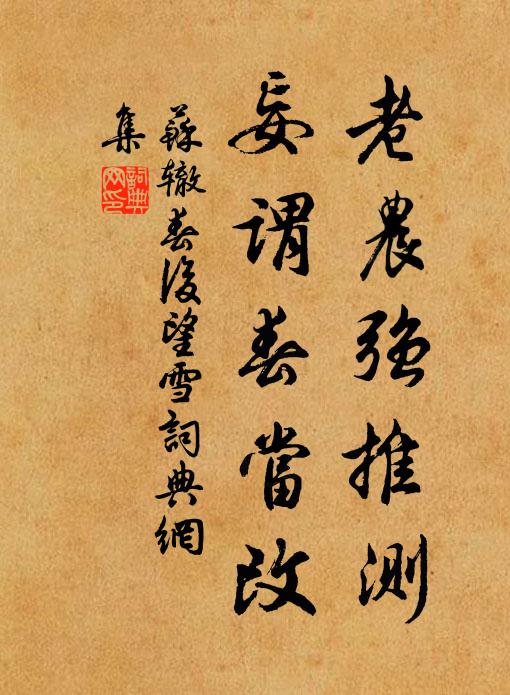 老農強推測
妄謂春當改
蘇轍春後望雪詞典網
集
詞典網印